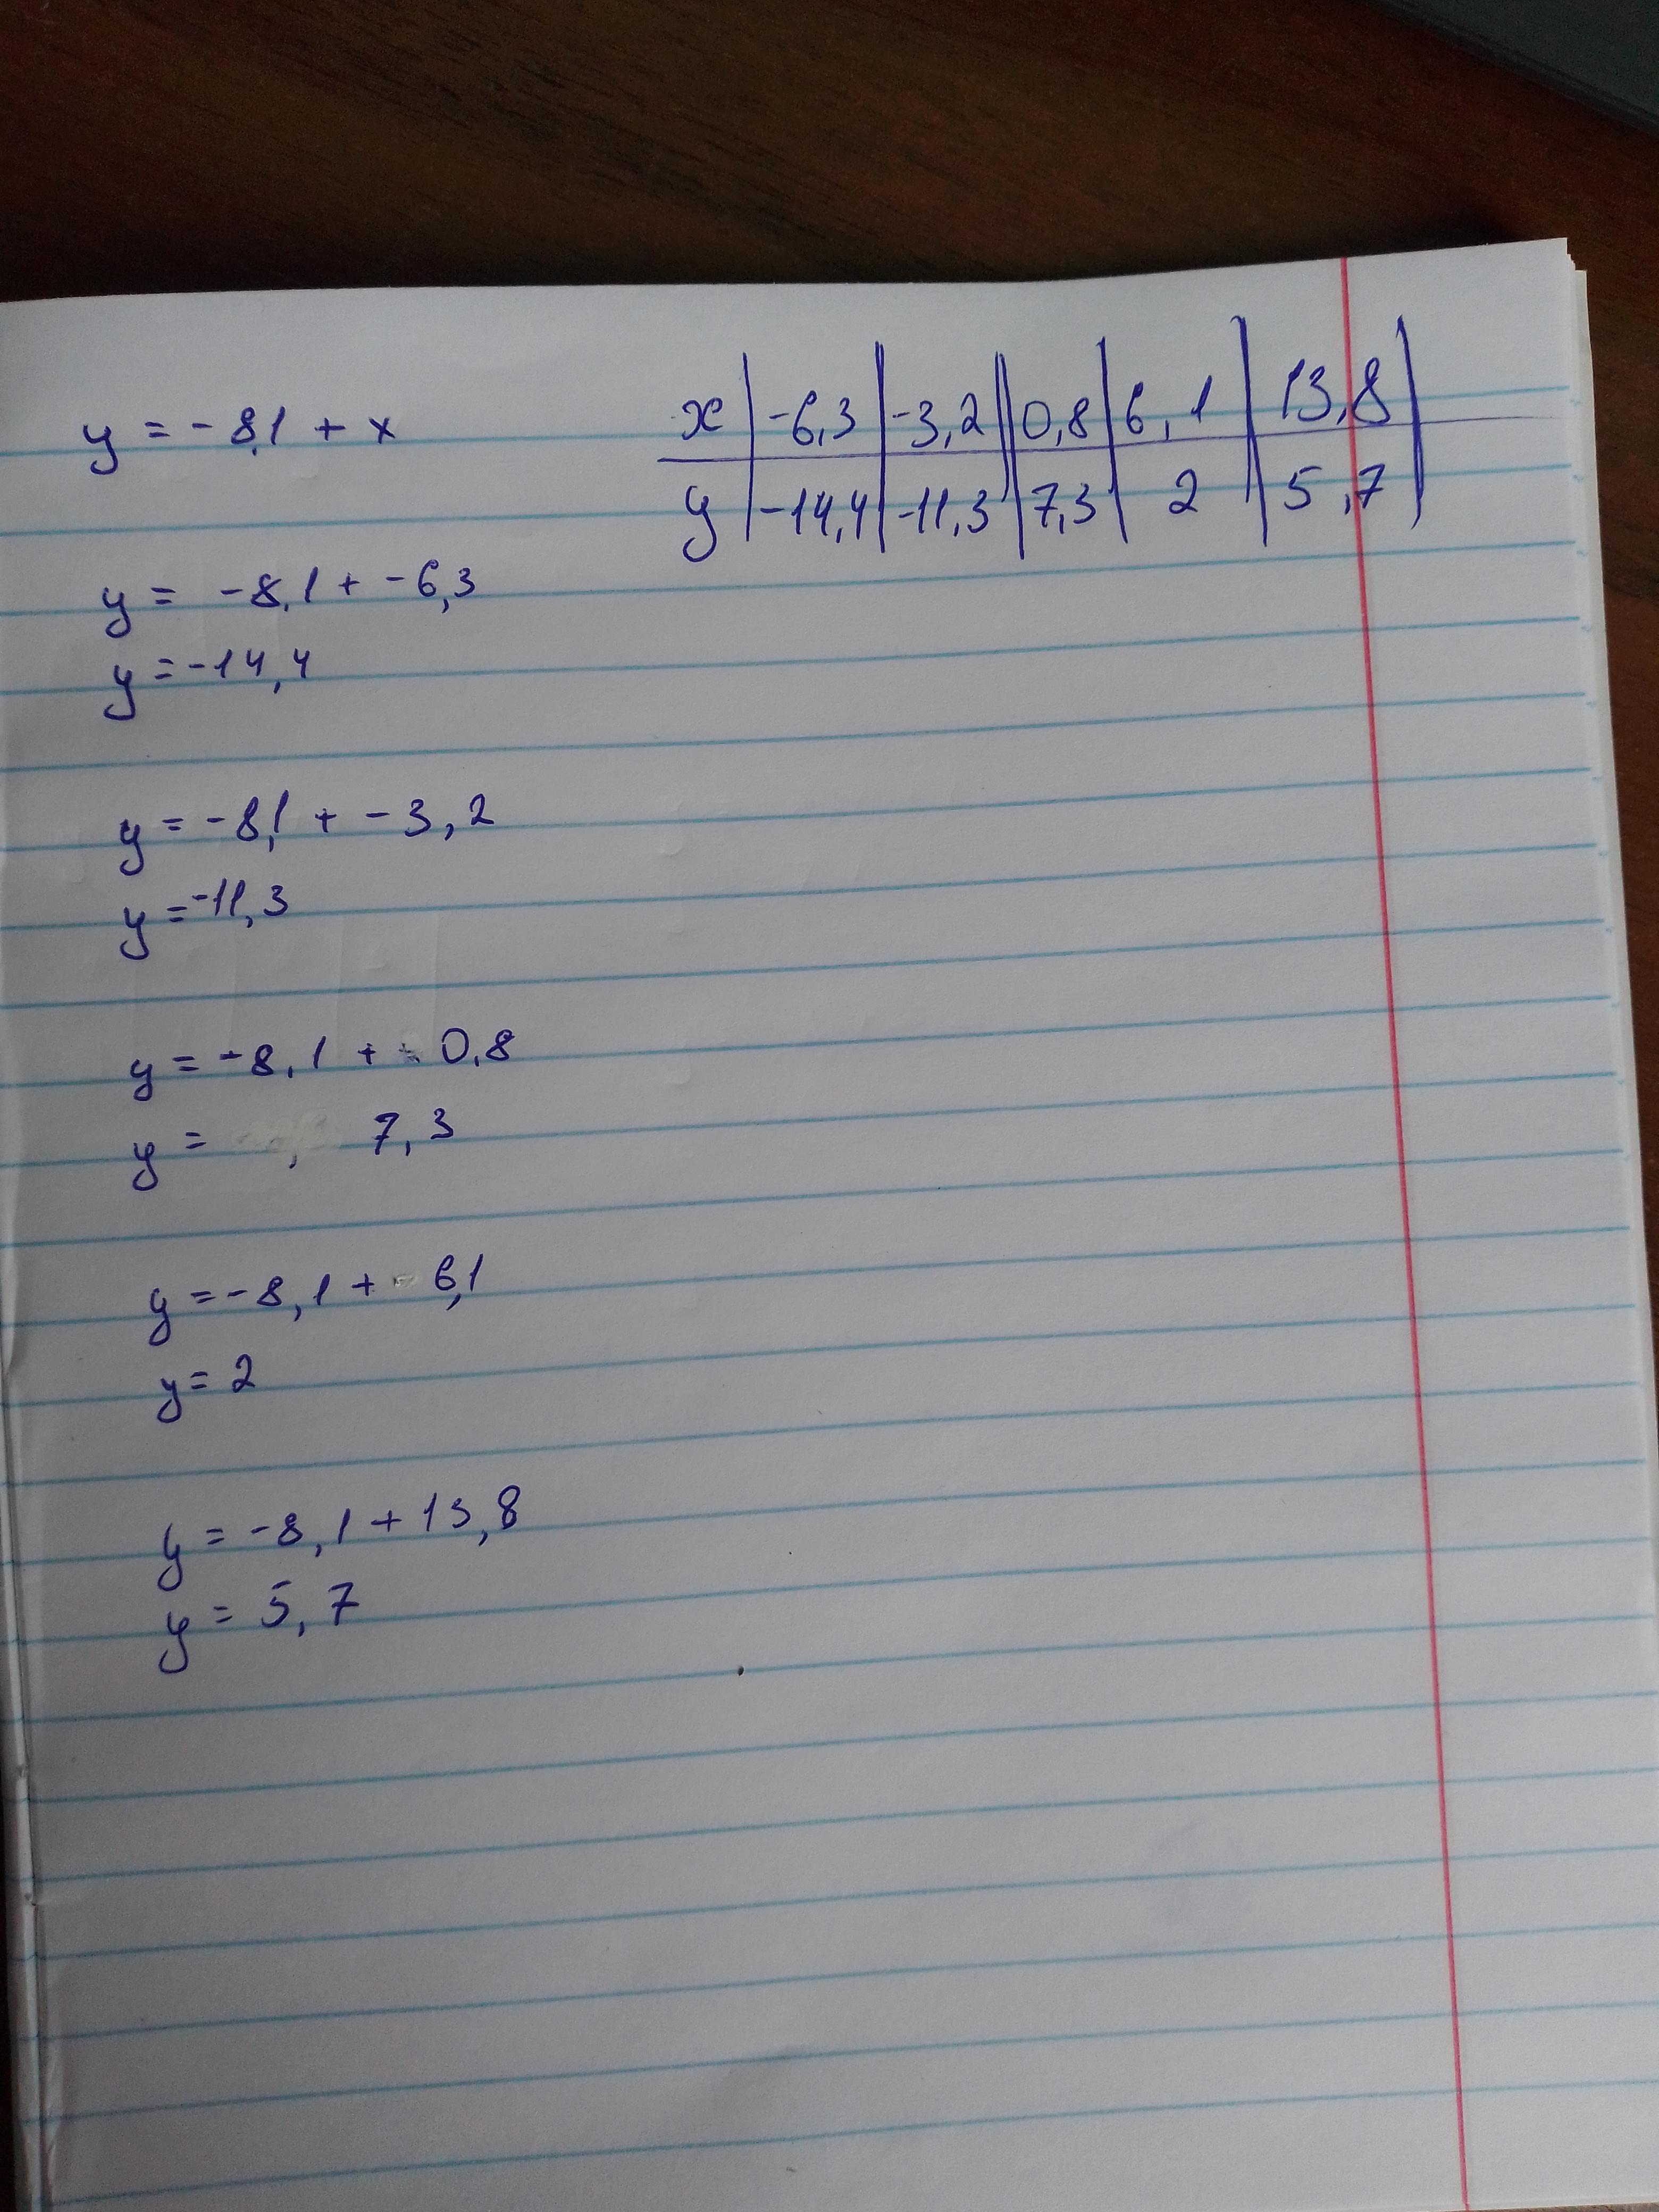 y = -8,1 + x
x | -6,3 | -3,2 | 0,8 | 6,1 | 13,8
y | -14,4 | -11,3 | 7,3 | 2 | 5,7
y = -8,1 + -6,3
y = -14,4
y = -8,1 + -3,2
y = -11,3
y = -8,1 + 0,8
y = 7,3
y = -8,1 + 6,1
y = 2
y = -8,1 + 13,8
y = 5,7